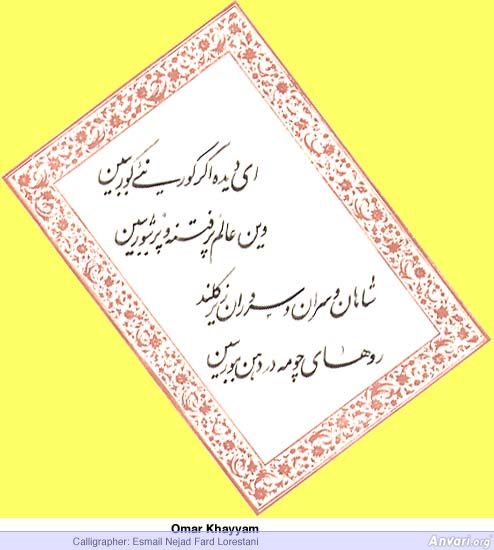 ای دیده اگر کور نئی گور ببین
وین عالم پر فتنه و پر شور ببین
شاهان و سران و سروران زیر گلند
روهای چو مه در دهن مور ببین
Omar Khayyam
Calligrapher: Esmail Nejad Fard Lorestani
Anvari.org